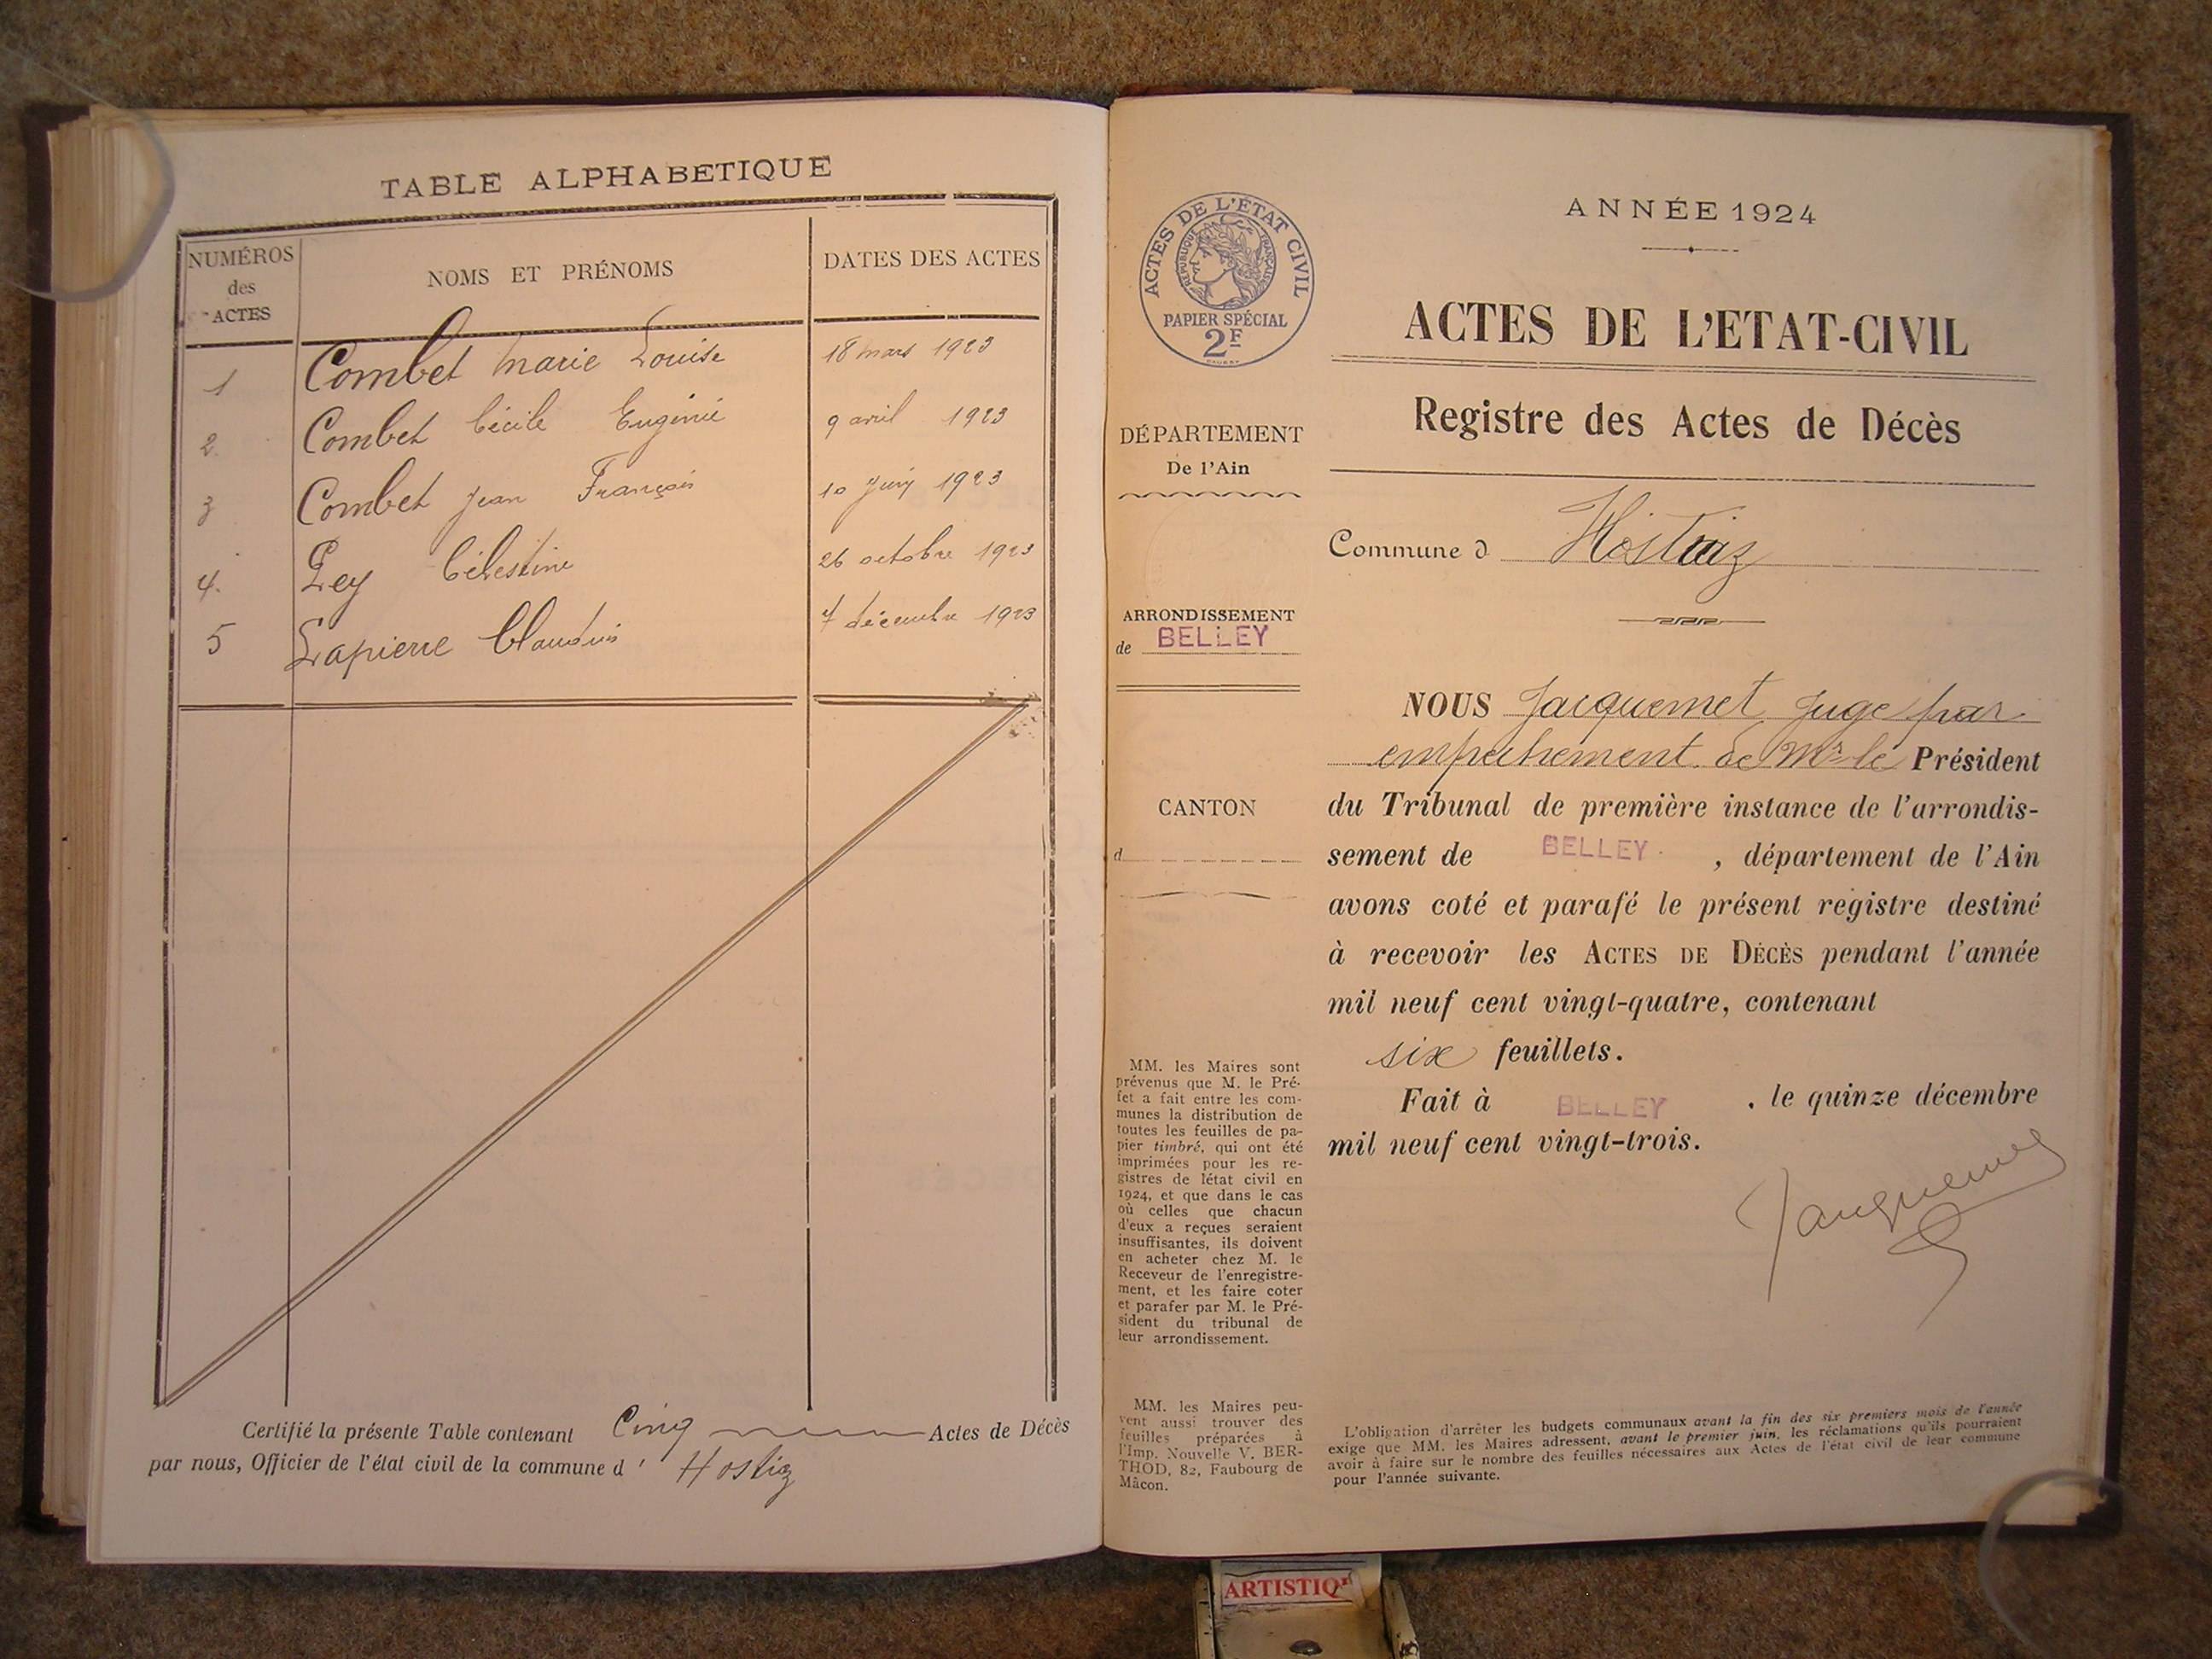 TABLE ALPHABETIQUE
NUMÉROS
des
ACTES
NOMS ET PRÉNOMS
DATES DES ACTES
1 Combet Marie Louise 18 mars 1923
2 Combet Cécile Eugénie 9 avril 1923
3 Combet Jean François 10 juin 1923
4. Ley Célestine 26 octobre 1923
5 Lapierre Claudius 7 décembre 1923
Certifié la présente Table contenant Cinq Actes de Décès
par nous, Officier de l'état civil de la commune d' Hostiaz
ACTES DE L'ÉTAT CIVIL
RÉPUBLIQUE FRANÇAISE
PAPIER SPÉCIAL
2F
DÉPARTEMENT
De l'Ain
ARRONDISSEMENT
de BELLEY
CANTON
d
MM. les Maires sont
prévenus que M. le Pré-
fet a fait entre les com-
munes la distribution de
toutes les feuilles de pa-
pier timbré, qui ont été
imprimées pour les re-
gistres de létat civil en
1924, et que dans le cas
où celles que chacun
d'eux a reçues seraient
insuffisantes, ils doivent
en acheter chez M. le
Receveur de l'enregistre-
ment, et les faire coter
et parafer par M. le Pré-
sident du tribunal de
leur arrondissement.
MM. les Maires peu-
vent aussi trouver des
feuilles préparées à
l'Imp. Nouvelle V. BER-
THOD, 82, Faubourg de
Mâcon.
ANNÉE 1924
ACTES DE L'ETAT-CIVIL
Registre des Actes de Décès
Commune d Hostiaz
NOUS Jacquemet Juge par
empêchement de Mr le Président
du Tribunal de première instance de l'arrondis-
sement de BELLEY , département de l'Ain
avons coté et parafé le présent registre destiné
à recevoir les ACTES DE DÉCÈS pendant l'année
mil neuf cent vingt-quatre, contenant
six feuillets.
Fait à BELLEY , le quinze décembre
mil neuf cent vingt-trois.
Jacquemet
L'obligation d'arrêter les budgets communaux avant la fin des six premiers mois de l'année
exige que MM. les Maires adressent, avant le premier juin, les réclamations qu'ils pourraient
avoir à faire sur le nombre des feuilles nécessaires aux Actes de l'état civil de leur commune
pour l'année suivante.
ARTISTIQ